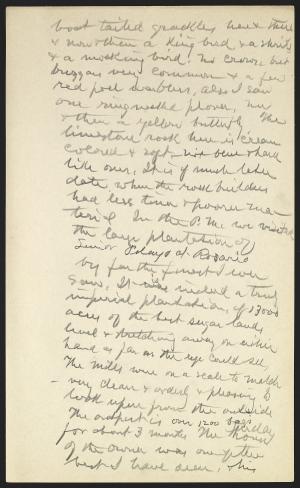 boat tailed grackles here & there
& now & then a King bird & a shrike
& a mocking bird. No crows but
buzzards very common & a few
red poll warblers, also I saw
one ringnecked plover, now
& then a yellow butterfly. The
limestone rock here is cream
colored & soft, not blue & hard
like ours, as if much later
date, when the rock builders
had less time & poorer ma-
terial. In the P.M. we visited
the large plantation of
Senior Pelayo at Rosario
by far the finest I ever
saw. It was indeed a truly
imperial plantation, of 13000
acres of the best sugar lands
level & stretching away on either
hand as far as the eye could see,
The mills were on a scale to match
- very clean & orderly & pleasing to
look upon from the outside
The output is over 1200 bags daily
for about 3 months The house
of the owner was one of the
best I have seen, this